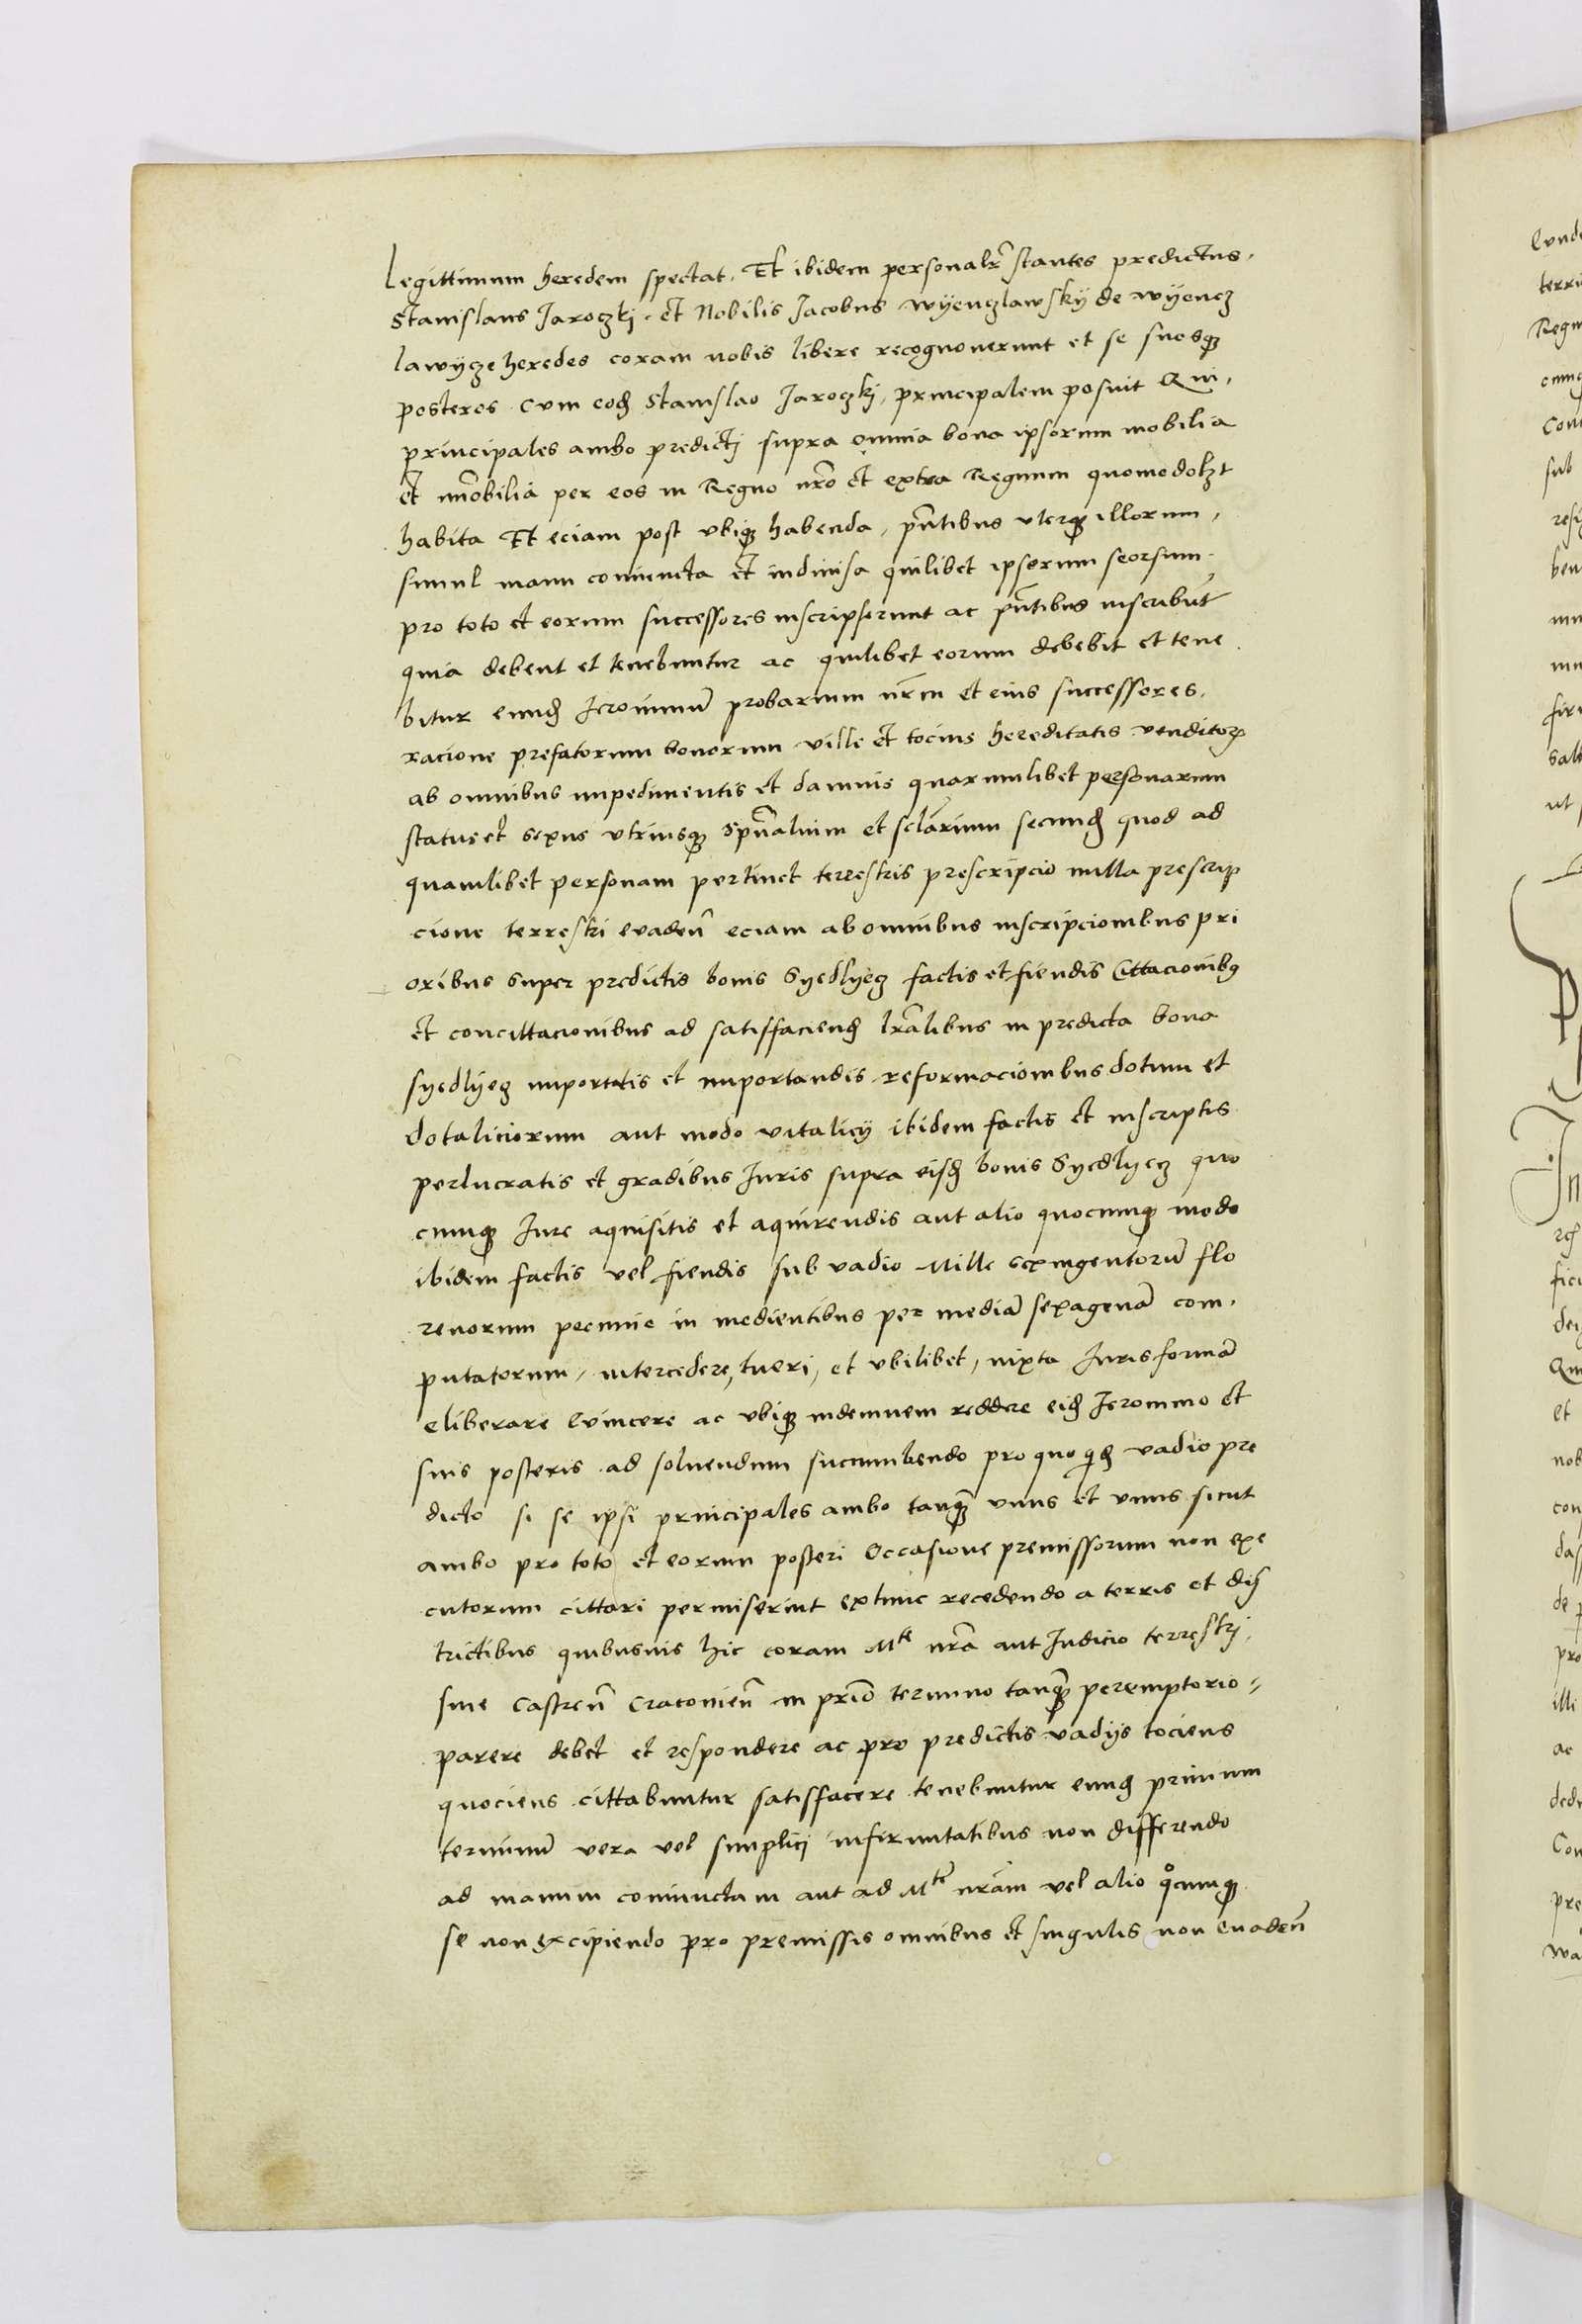 legittimum heredem spectat. Et ibidem personalr̄ stantes predictus.
Stanislaus Jaroczkj. et Nobilis Jacobus Wyenczlawskÿ de Wÿencz
lawÿcze heredes coram nobis libere recognouerunt et se suosqꝫ
posteros Cum eodꝫ Stanislao Jaroczkj, principalem posuit Qui,
principales ambo predictj supra omnia bona ipsorum mobilia
et im̄obilia per eos in Regno nr̄o et extra Regnum quomodolꝫt
habita Et eciam post vbiqꝫ habenda, pn̄tibus vterqꝫ illorum,
simul manu coniuncta et indiuisa quilibet ipsorum seorsum
pro toto et eorum successores inscripserunt ac pn̄tibus inscribūt
quia debent et tenebuntur ac quilibet eorum debebit et tene
bitur eundꝫ Jeronimū probarium nr̄m et eius successores.
racione prefatorum bonorum ville et tocius hereditatis venditoꝝ
ab omnibus impedimentis et damnis quarumlibet personarum
status et sexus vtriusqꝫ spūalium et sclārium secundꝫ quod ad
quamlibet personam pertinet terrestris prescripcio nulla prescrip
cione terrestri euadeñ eciam ab omnibus inscripcionibus pri
oribus super predictis bonis Syedlyecz factis et fiendis Cittacionibꝯ
et concittacionibus ad satisfaciendꝫ lrālibus in predicta bona
syedlÿecz importatis et importandis reformacionibus dotum et
dotaliciorum aut modo vitalicÿ ibidem factis et inscriptis
perlucratis et gradibus Juris supra eisdꝫ bonis Syedlyecz quo
cumqꝫ Jure aquisitis et aquirendis aut alio quocumqꝫ modo
ibidem factis vel fiendis sub vadio Mille sexingentorū flo
renorum pecunie in medientibus per mediā sexagenā com.
putatorum, intercedere, tueri, et vbilibet, iuxta Juris formā
eliberare Euincere ac vbiqꝫ indemnem reddere eidꝫ Jeronimo et
suis posteris ad soluendum succumbendo pro quo qidꝫ vadio pre
dicto si se ipsi principales ambo tanqꝫ vnus et vnus sicut
ambo pro toto et eorum posteri Occasione premissorum non exe
cutorum cittari permiserint extunc recedendo a terris et dis
trictibus quibusuis hic coram Mte nrā aut Judicio terrestrj.
siue Castreñ Cracouieñ in prīo termino tanqꝫ peremptorio⸗
parere debet et respondere ac pro predictis vadÿs tociens
quociens cittabuntur satisfacere tenebuntur eundꝫ primum
terminū vera vel simplicj infirmitatibus non differendo
ad manum coniunctam aut ad Mtē nrām vel alio qͦcumqꝫ
se non excipiendo pro premissis omnibus et singulis non euadeñ